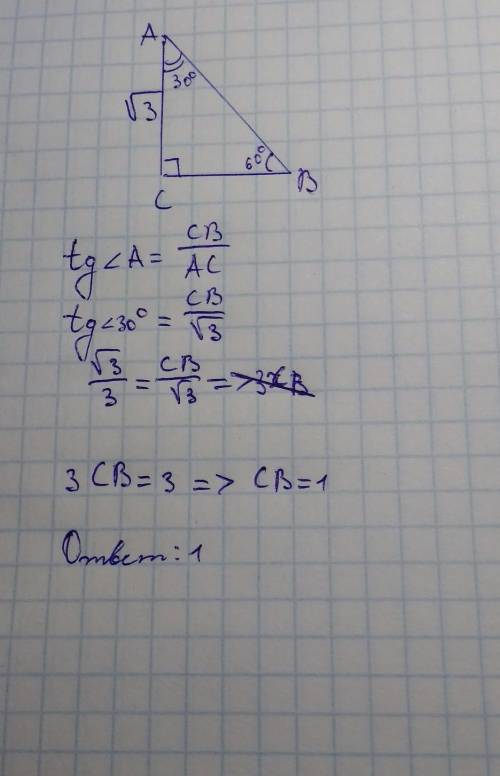 A
30°
√3
60°
C
B
tg∠A = CB/AC
tg∠30° = CB/√3
√3/3 = CB/√3 =
3CB = 3 => CB = 1
Ответ: 1